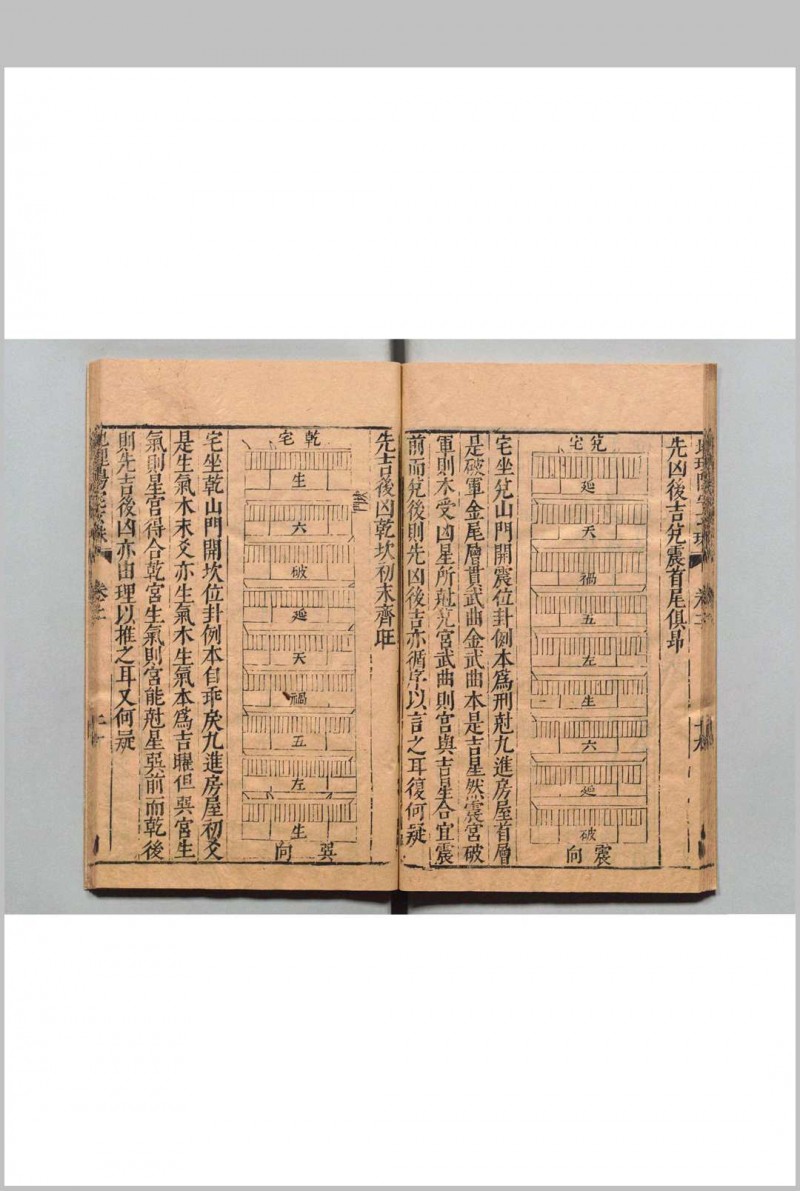 先凶後吉兌震首尾俱昂
兌宅
延
天
禍
五
左
生
六
延
破
震向
宅坐兌山門開震位卦例本為刑尅九進房屋首層
是破軍金尾層貫武曲金武曲本是吉星然震宮破
軍則木受凶星所尅兌宮武曲則宮與吉星合宜震
前而兌後則先凶後吉亦循序以言之耳復何疑
先吉後凶乾坎初末齊旺
乾宅
生
六
破
延
天
禍
五
左
生
巽向
宅坐乾山門開坎位卦例本自乖戾九進房屋初爻
是生氣木末爻亦生氣木生氣本為吉曜但巽宮生
氣則星宮得合乾宮生氣則宮能尅星巽前而乾後
則先吉後凶亦由理以推之耳又何疑